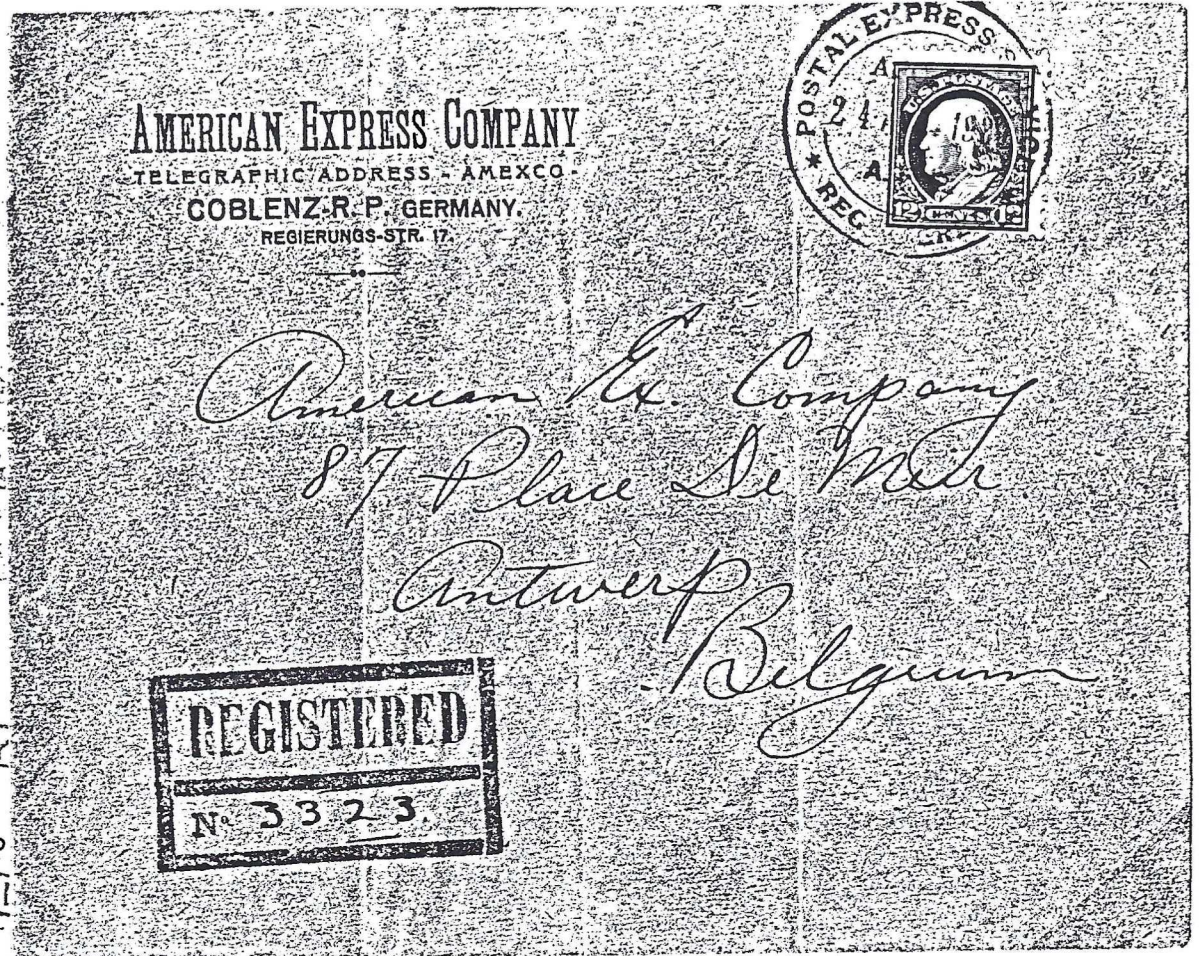 AMERICAN EXPRESS COMPANY
TELEGRAPHIC ADDRESS - AMEXCO -
COBLENZ-R. P. GERMANY.
REGIERUNGS-STR. 17.
★ POSTAL EXPRESS
REG.
U.S. POSTAGE
12 CENTS 12
American Ex. Company
87 Place De Meir
Antwerp
Belgium
REGISTERED
No. 3323.